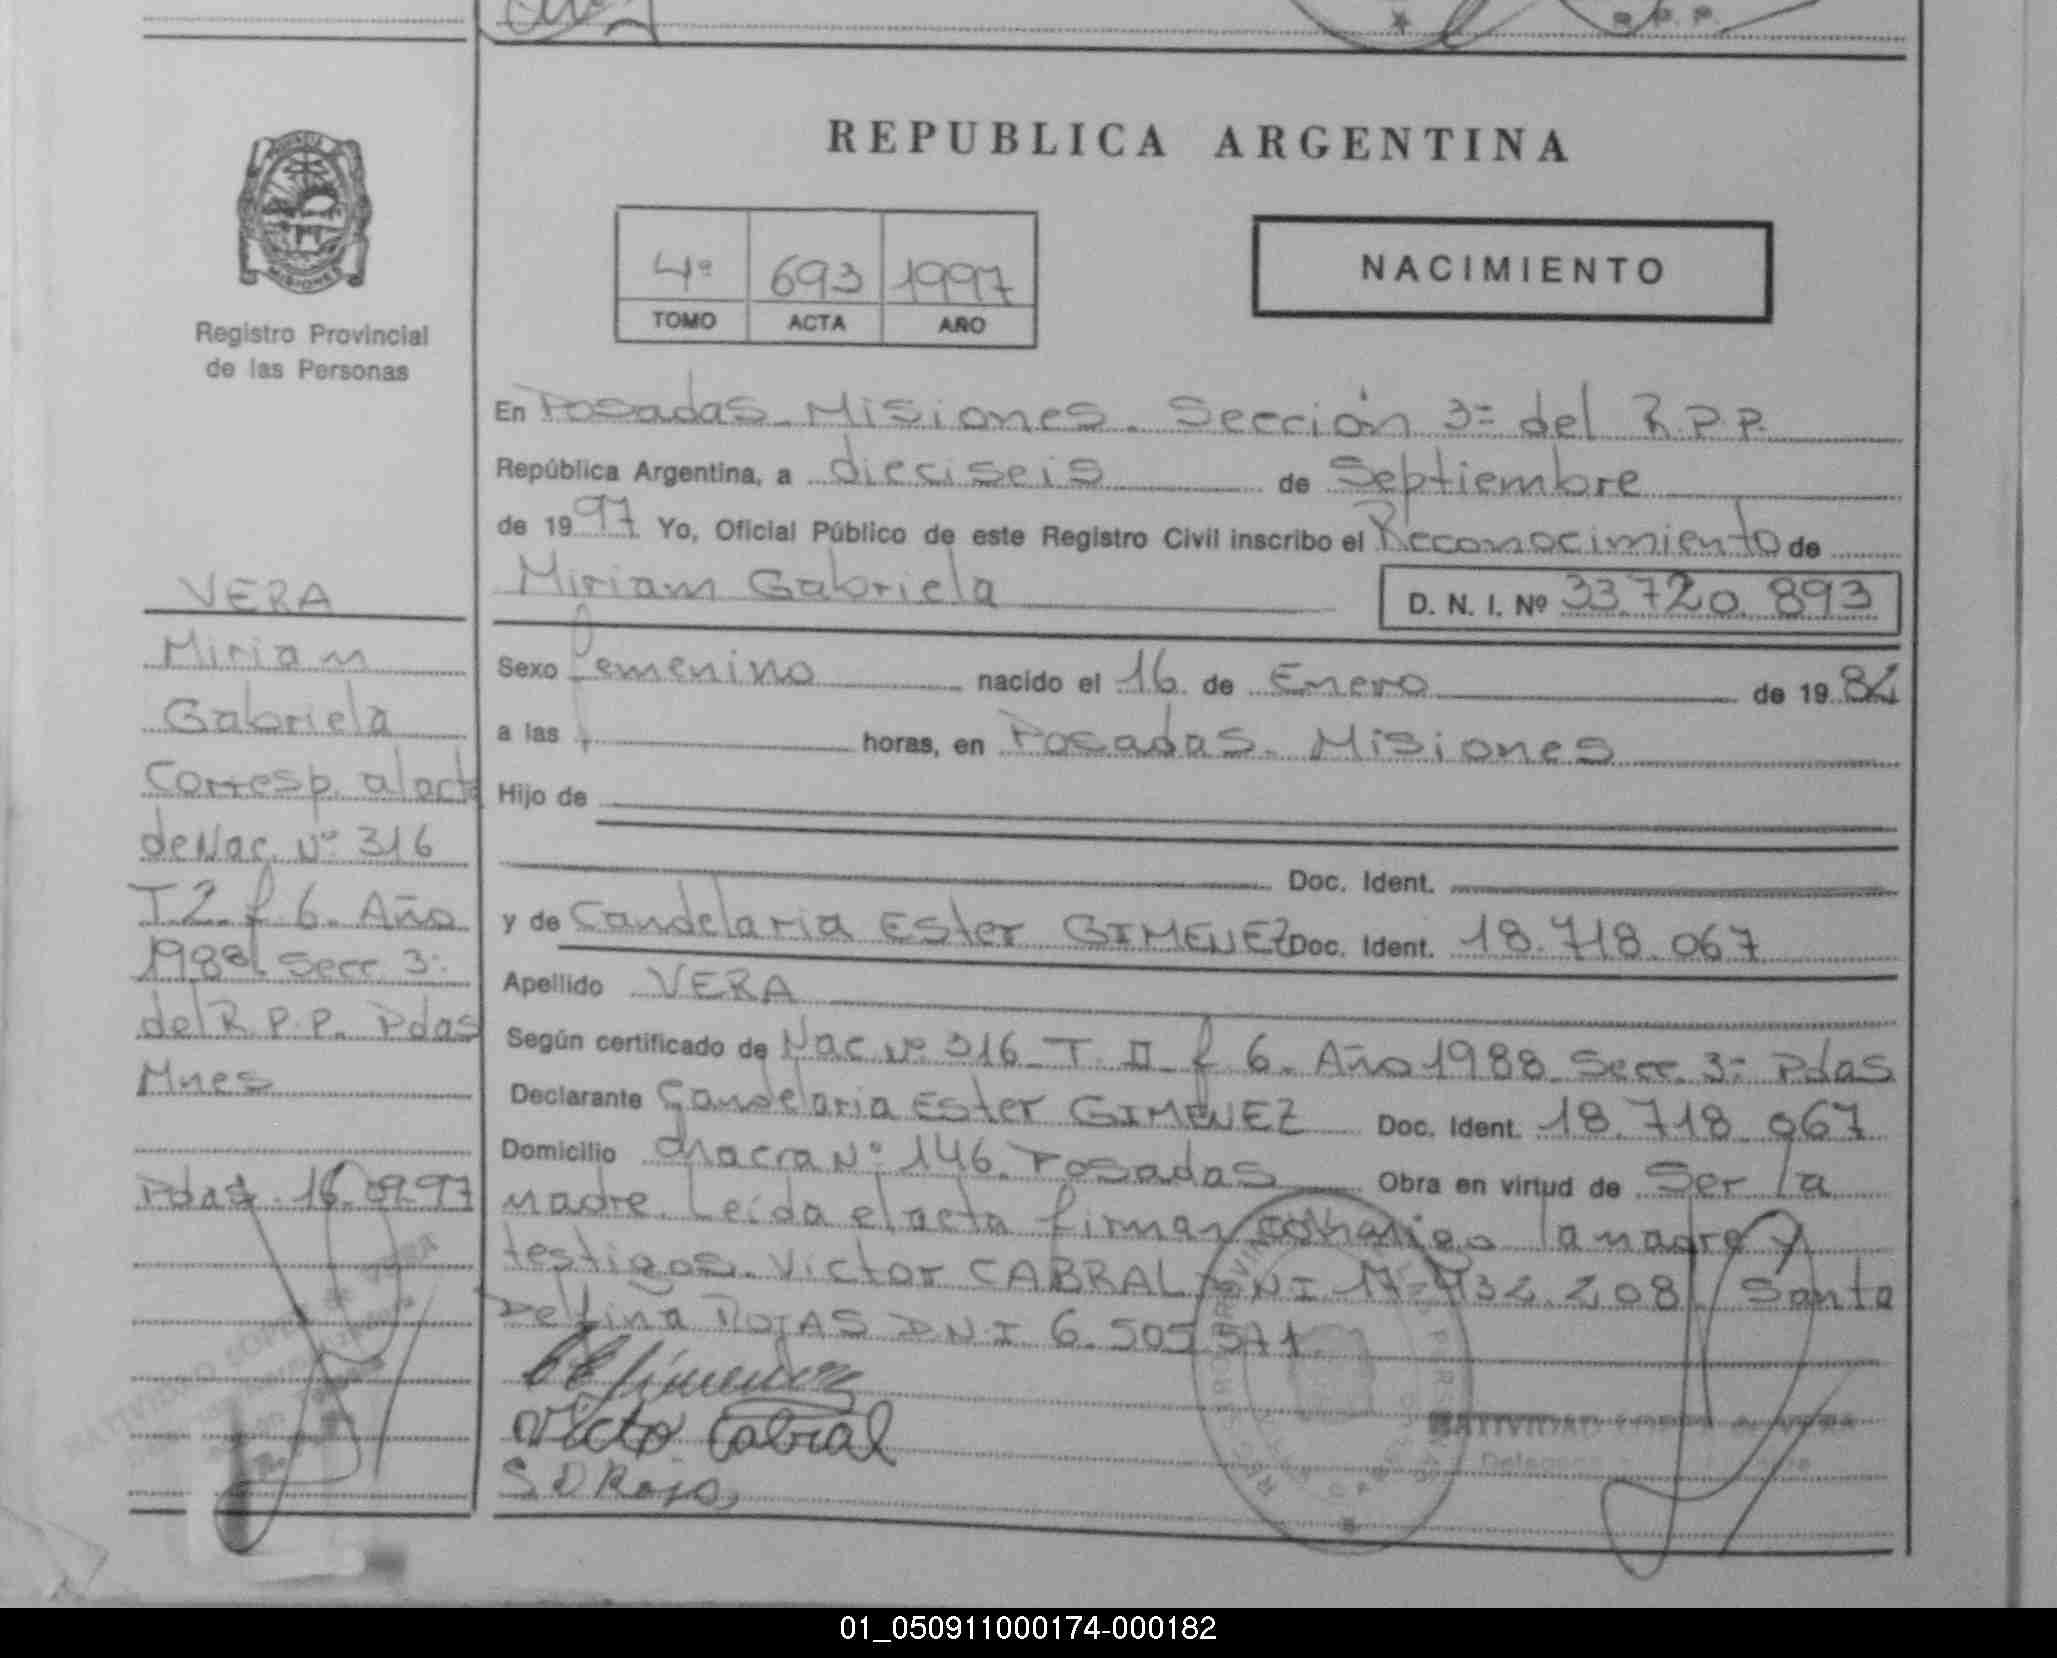 REPUBLICA ARGENTINA
MISIONES
Registro Provincial
de las Personas
4º 693 1997
TOMO ACTA AÑO
NACIMIENTO
En Posadas. Misiones. Sección 3= del R.P.P.
República Argentina, a dieciseis de Septiembre
de 1997 Yo, Oficial Público de este Registro Civil inscribo el Reconocimiento de
Miriam Gabriela D. N. I. Nº 33.720.893
Sexo femenino nacido el 16 de Enero de 1984
a las horas, en Posadas. Misiones
Hijo de
Doc. Ident.
y de Candelaria Ester GIMENEZ Doc. Ident. 18.718.067
Apellido VERA
Según certificado de Nac Nº 316 T. II f 6. Año 1988 Secc. 3= Pdas
Declarante Candelaria Ester GIMENEZ Doc. Ident. 18.718.067
Domicilio Chacra Nº 146. Posadas Obra en virtud de Ser la
madre. Leída el acta firman conmigo la madre y
testigos. Victor CABRAL DNI 17.432.208 Santa
Delfina ROJAS D.N.I 6.505.571.
Victo Cabral
S D Rojas
NATIVIDAD
VERA
Miriam
Gabriela
Corresp. al acta
de Nac. Nº 316
T 2. f 6. Año
1988 Secc 3=
del R.P.P. Pdas
Mnes
Pdas 16.09.97
01_050911000174-000182